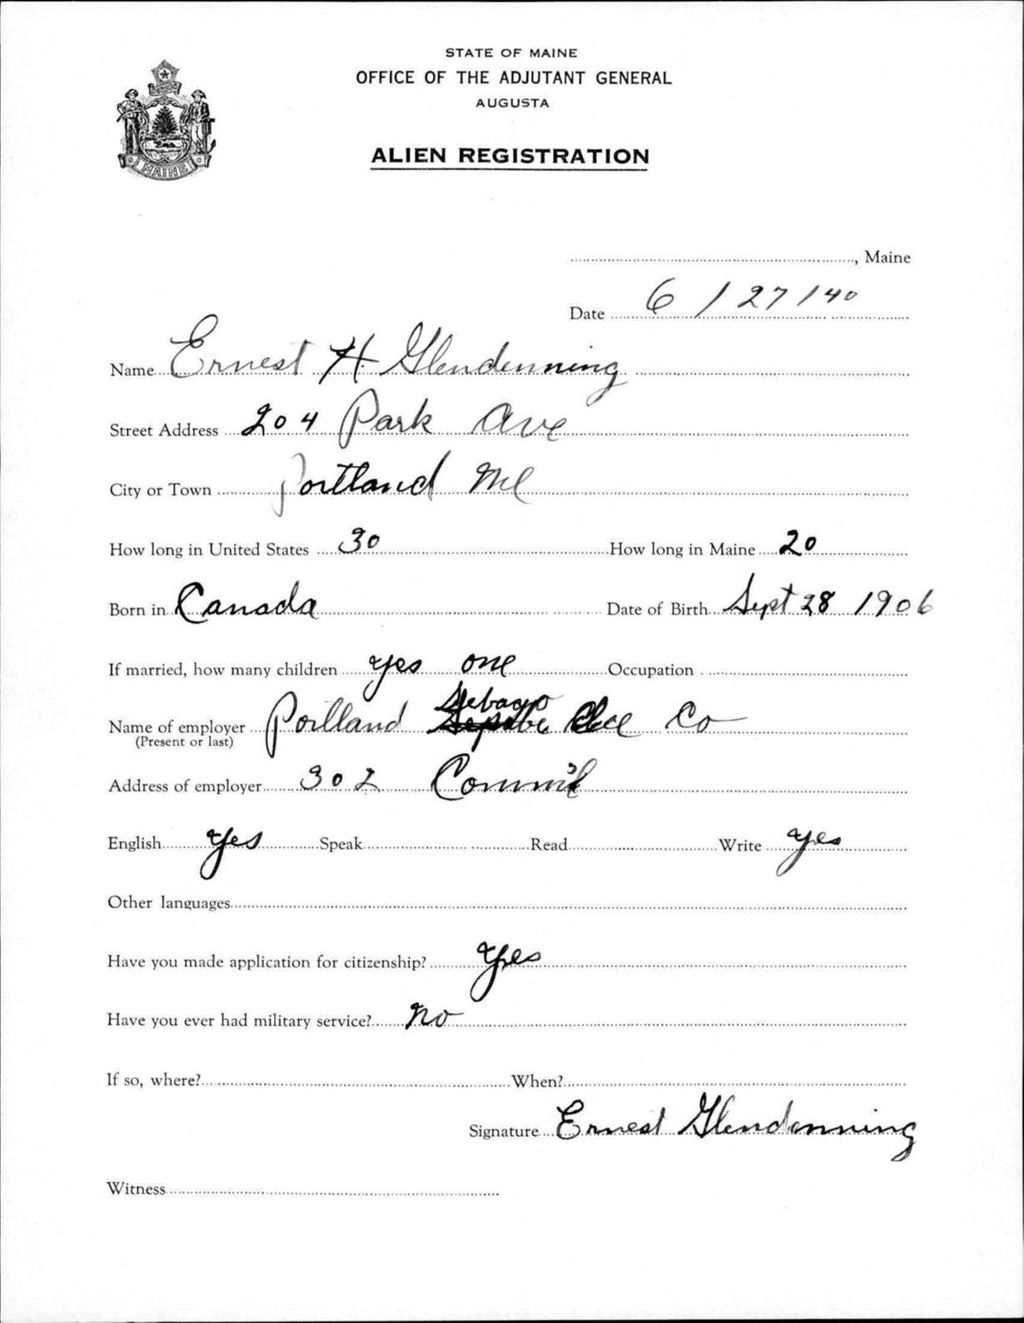 STATE OF MAINE
OFFICE OF THE ADJUTANT GENERAL
AUGUSTA
ALIEN REGISTRATION
MAINE
, Maine
Date 6 / 27 / 40
Name Ernest H. Glendenning
Street Address 204 Park Ave
City or Town Portland Me
How long in United States 30 How long in Maine 20
Born in Canada Date of Birth Sept 28 1906
If married, how many children yes one Occupation
Sebago
Name of employer Portland Ice Co
(Present or last)
Address of employer 302 Comm'l
English Yes Speak Read Write Yes
Other languages
Have you made application for citizenship? Yes
Have you ever had military service? No
If so, where? When?
Signature Ernest Glendenning
Witness